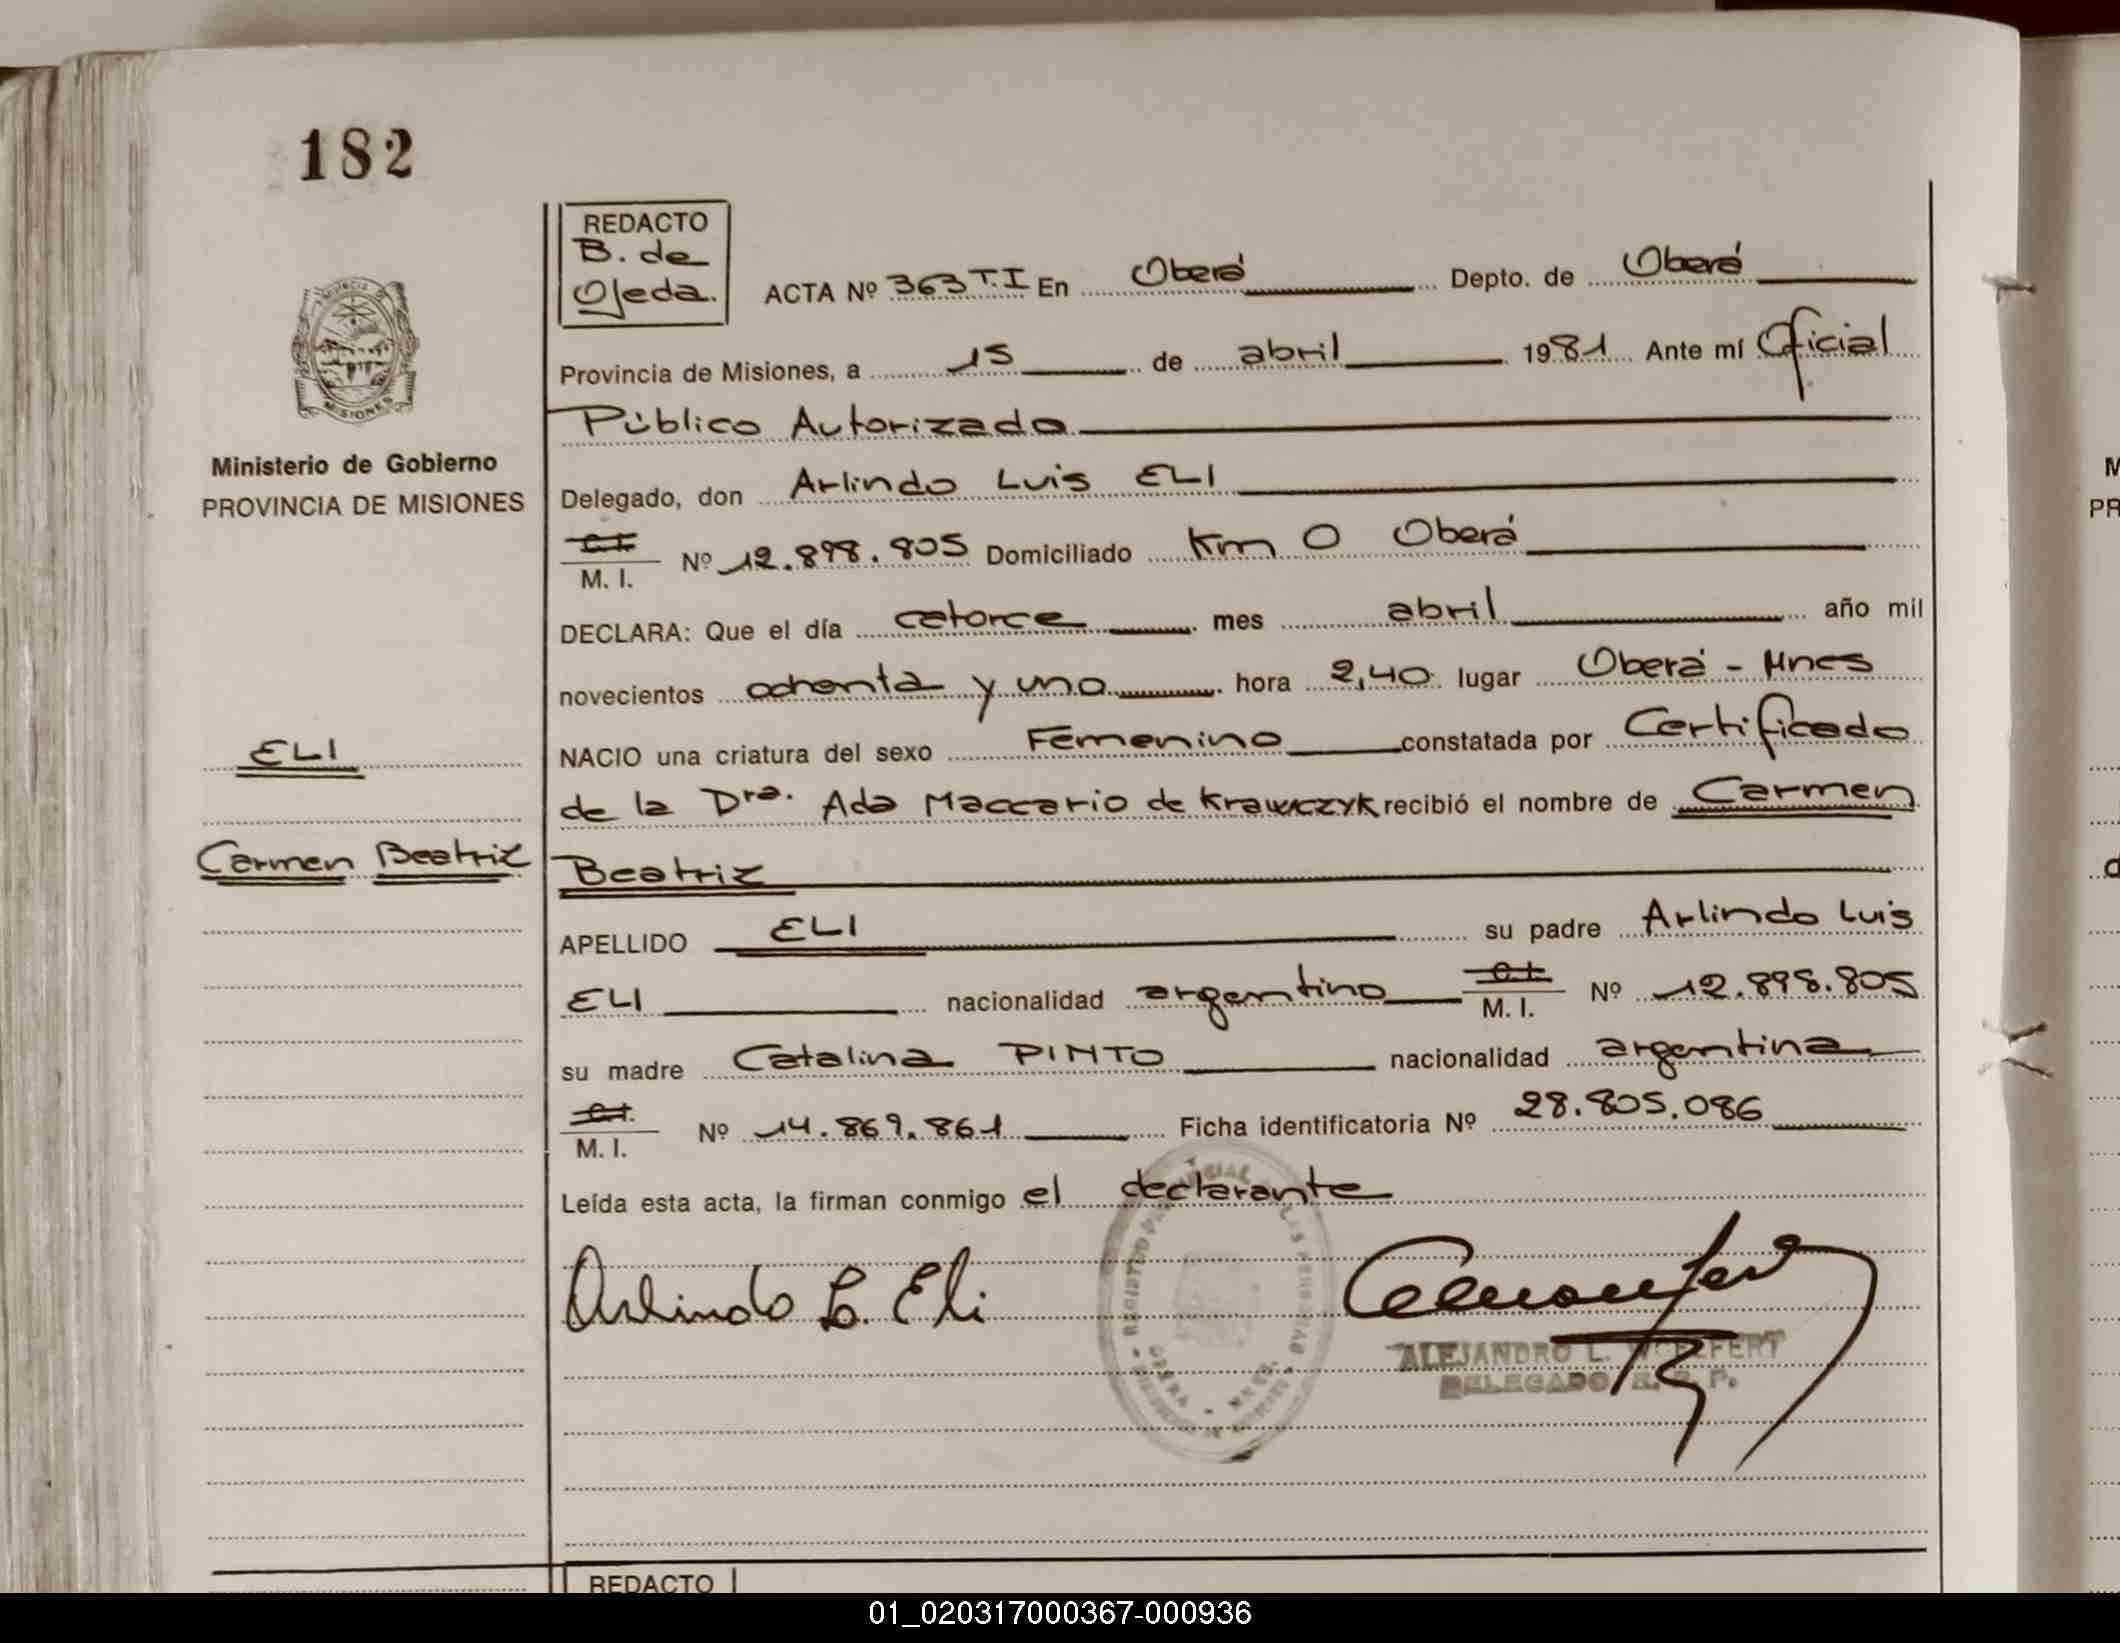 182
REDACTO
B. de
Ojeda.
ACTA Nº 363 T.I En Oberá Depto. de Oberá
Provincia de Misiones, a 15 de abril 1981 Ante mí Oficial
Público Autorizado
Ministerio de Gobierno
PROVINCIA DE MISIONES
Delegado, don Arlindo Luis ELI
C.I.
M. I. Nº 12.898.805 Domiciliado Km 0 Oberá
DECLARA: Que el día catorce mes abril año mil
novecientos ochenta y uno hora 2,40 lugar Oberá - Mnes
ELI
NACIO una criatura del sexo Femenino constatada por Certificado
de la Dra. Ada Maccario de Krawczyk recibió el nombre de Carmen
Carmen Beatriz
Beatriz
APELLIDO ELI su padre Arlindo Luis
ELI nacionalidad argentino C.I. M. I. Nº 12.898.805
su madre Catalina PINTO nacionalidad argentina
C.I.
M. I. Nº 14.869.861 Ficha identificatoria Nº 28.805.086
Leída esta acta, la firman conmigo el declarante
Arlindo L. Eli
ALEJANDRO L.
DELEGADO R. P.
OBERA - MNES.
REDACTO
01_020317000367-000936